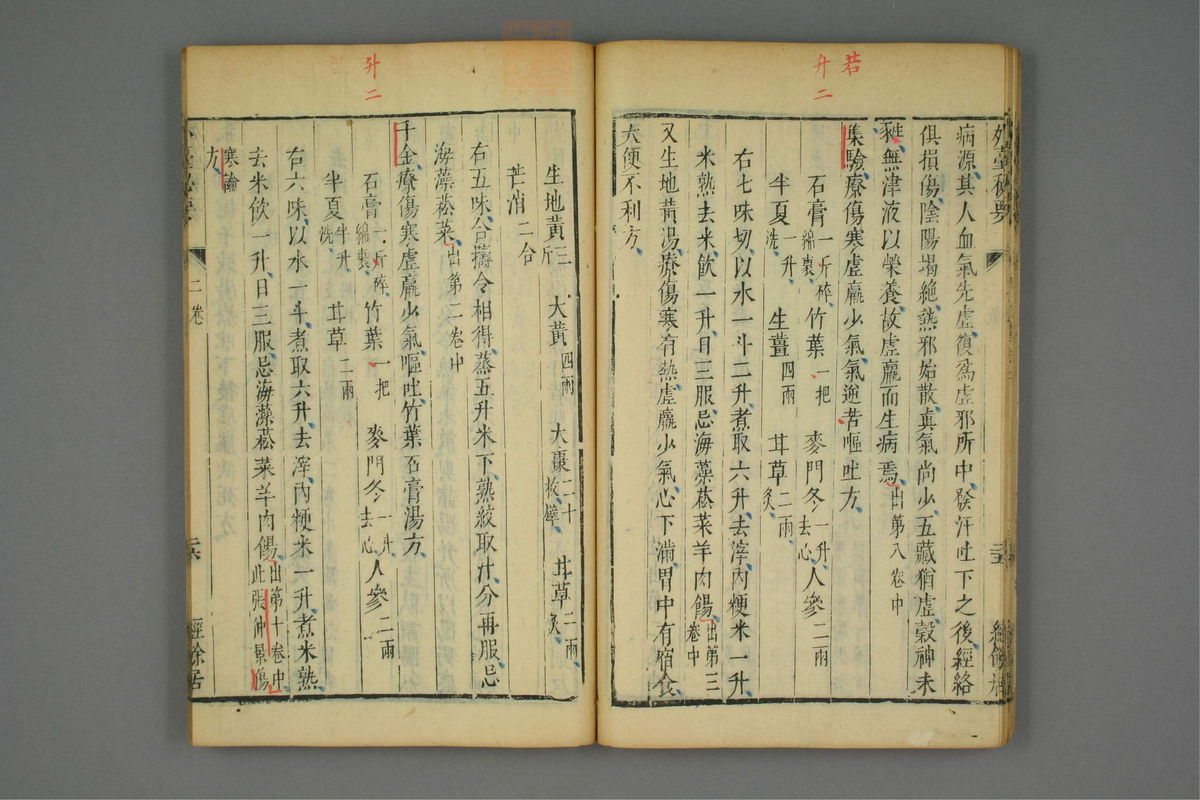 外臺秘要
病源其人血氣先虛復爲虛邪所中發汗吐下之後經絡
俱損傷陰陽竭絕熱邪始散眞氣尚少五藏猶虛穀神未
無津液以榮養故虛羸而生病焉出第八卷中
集驗療傷寒虛羸少氣氣逆苦嘔吐方
石膏一斤碎綿裹 竹葉一把 麥門冬一升去心 人參二兩
半夏一升洗 生薑四兩 甘草二兩炙
右七味切以水一斗二升煮取六升去滓內粳米一升
米熟去米飲一升日三服忌海藻菘菜羊肉餳出第三卷中
又生地黃湯療傷寒有熱虛羸少氣心下滿胃中有宿食
大便不利方
若
升二
生地黃三斤 大黃四兩 大棗二十枚擘 甘草二兩炙
芒消二合
右五味合擣令相得蒸五升米下熟絞取汁分再服忌
海藻菘菜出第二卷中
千金療傷寒虛羸少氣嘔吐竹葉石膏湯方
石膏一斤碎綿裹 竹葉一把 麥門冬一升去心 人參二兩
半夏半升洗 甘草二兩
右六味以水一斗煮取六升去滓內粳米一升煮米熟
去米飲一升日三服忌海藻菘菜羊肉餳出第十卷中此張仲景傷
寒論
方
升二
二卷
二六
經餘居